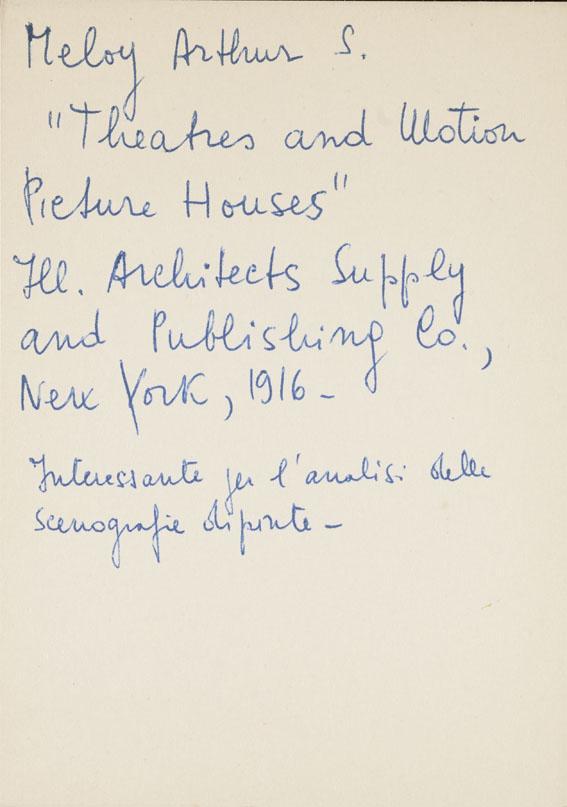 Meloy Arthur S.
"Theatres and Motion
Picture Houses"
Ill. Architects Supply
and Publishing Co.,
New York, 1916 -
Interessante per l'analisi delle
scenografie dipinte -